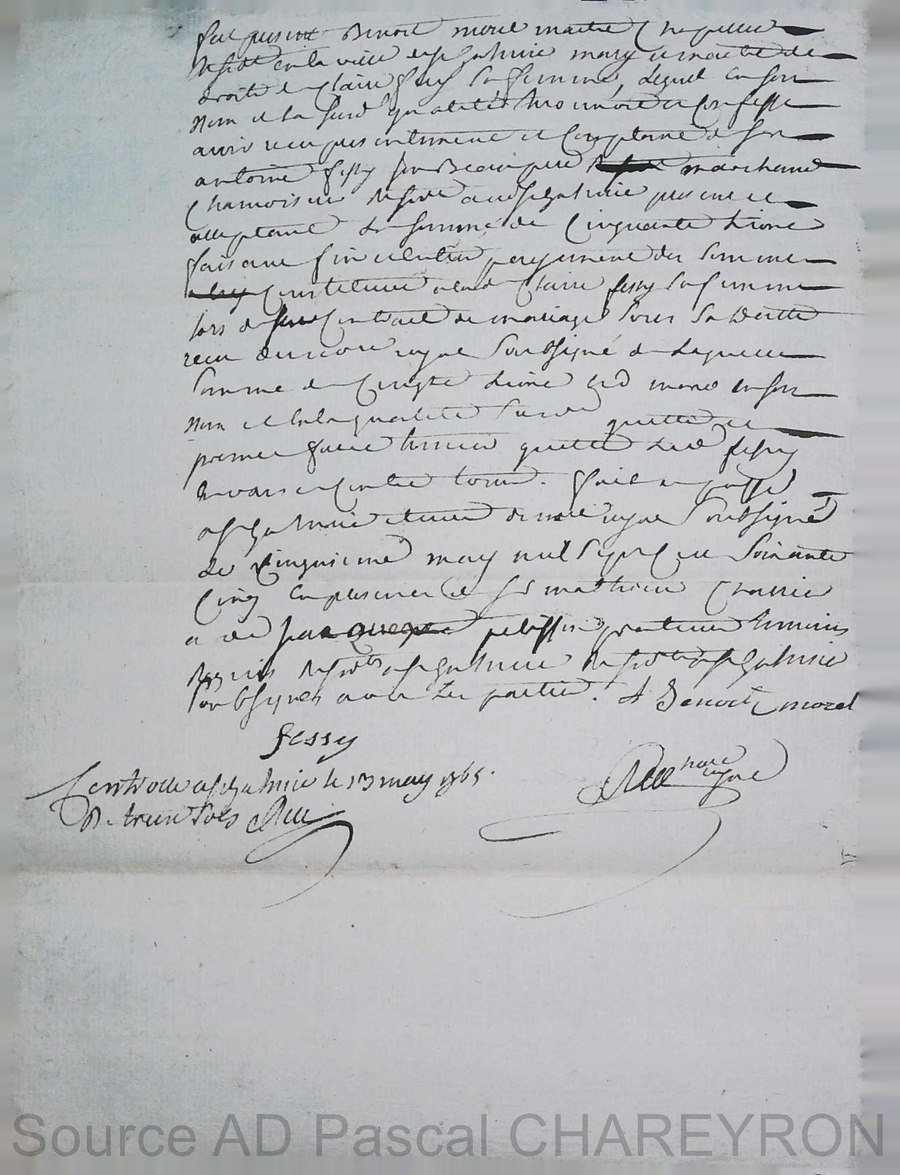 fut present Benoit morel maitre Chapellier
reside en la ville de st galmier mary et maitre des
droits de Claire fessy sa femme, lequel en son
nom et la susd qualité a reconnu et confesse
avoir recu presentement et comptant de sieur
antoine fessy son Beau pere marchand
Chamoiseur reside aud st galmier present et
acceptant la somme de Cinquante Livres
faisant fin et entier payement des sommes
Constituées a lad Claire fessy sa femme
lors de Contrat de mariage sous sa datte
recu du notaire royal soubsigné de laquelle
somme de Cinqte Livres led morel en son
nom et en la qualité susd quitte et
promet faire tenir quitte led fessy
envers et contre tous. fait et passé
a st galmier etude du notaire royal soubsigné
le may mil sept cent soixante
Cinq en presence de sr mathieu
et de praticiens temoins
requis residts a st galmier
soubsignés avec les parties. Benoit morel
fessy
nore royal
Controlle a st galmier le 13 may 1765.
R. treize sols
Source AD Pascal CHAREYRON